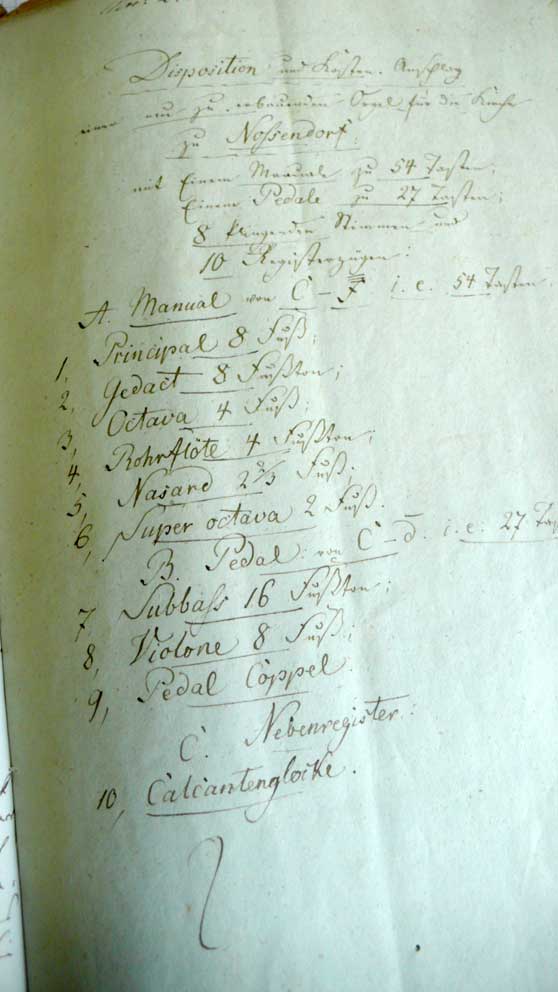 Disposition und Kosten-Anschlag
einer neu zu erbauenden Orgel für die Kirche
zu Nossendorf,
mit Einem Manuale zu 54 Tasten,
Einem Pedale zu 27 Tasten;
8 klingenden Stimmen und
10 Registerzügen:
A. Manual von C – f̿ i. e. 54 Tasten.
1, Principal 8 Fuß;
2, Gedact 8 Fußton;
3, Octava 4 Fuß;
4, Rohrflöte 4 Fußton;
5, Nasard 2 2/3 Fuß;
6, Super octava 2 Fuß.
B. Pedal: von C – d̄. i. e. 27
7, Subbass 16 Fußton;
8, Violone 8 Fuß;
9, Pedal Coppel.
C. Nebenregister:
10, Calcantenglocke.